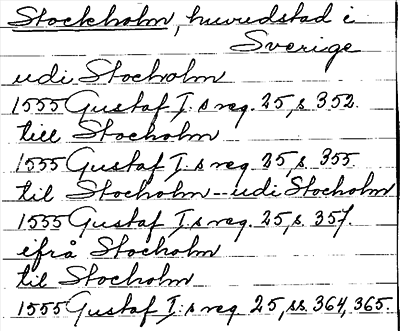 Stockholm, huvudstad i
Sverige
udi Stocholm
1555 Gustaf I:s reg. 25, s. 352.
till Stocholm
1555 Gustaf I:s reg. 25, s. 355.
til Stocholm - udi Stocholm
1555 Gustaf I:s reg. 25, s. 357.
ifrå Stocholm
til Stocholm
1555 Gustaf I:s reg. 25, ss. 364, 365.